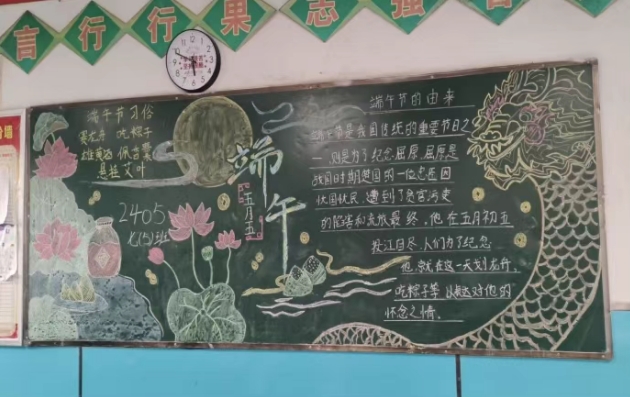 言行行果志强
端午节习俗
赛龙舟 吃粽子
雄黄酒 佩香囊
悬挂艾叶
2405
端午
五月五
端午节的由来
端午节是我国传统的重要节日之
一 则是为了纪念屈原 屈原是
战国时期楚国的一位忠臣因
忧国忧民 遭到了贪官污吏
的陷害和流放最终，他在五月初五
投江自尽.人们为了纪念
他.就在这一天划龙舟、
吃粽子等 以表达对他的
怀念之情。